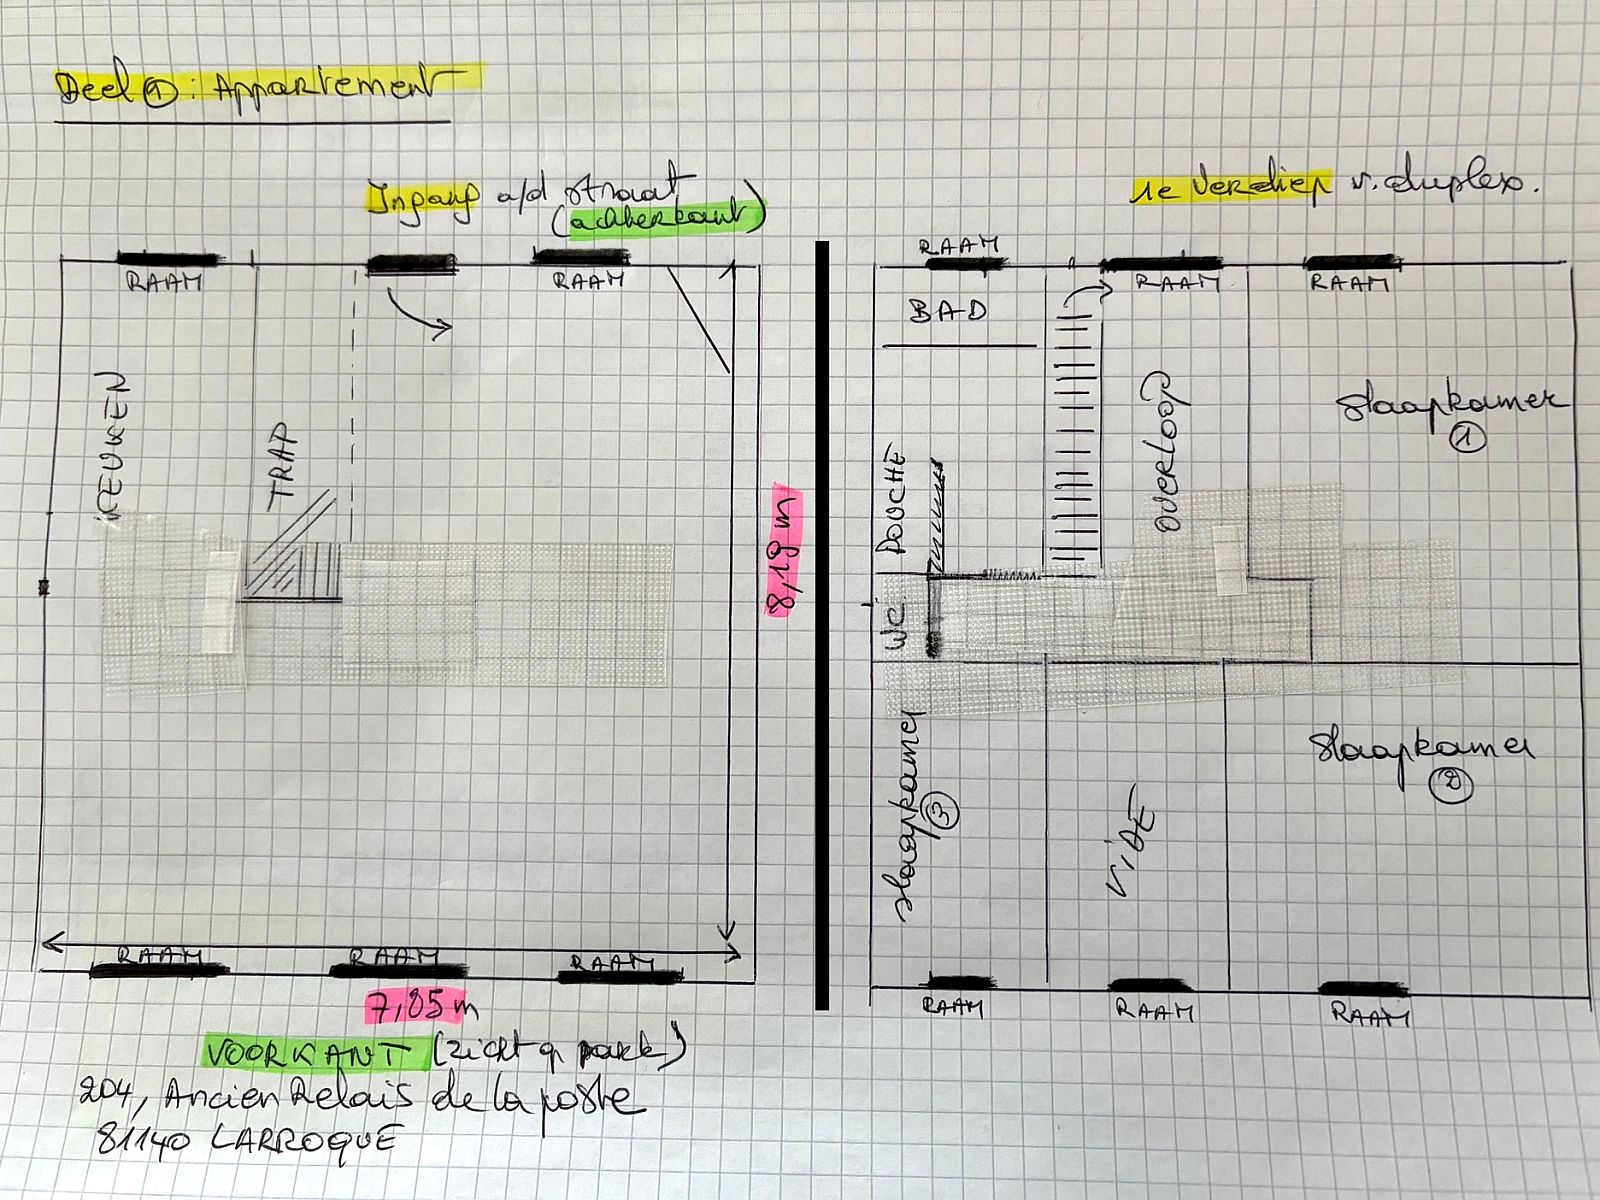 Deel ①: Appartement
Ingang a/d straat
(achterkant)
RAAM
RAAM
KEUKEN
TRAP
8,19 m
RAAM
RAAM
RAAM
7,85 m
VOORKANT (zicht op park)
204, Ancien Relais de la poste
81140 LARROQUE
1e Verdiep v. duplex.
RAAM
RAAM
RAAM
BAD
OVERLOOP
Slaapkamer
①
DOUCHE
WC
Slaapkamer
③
VIDE
Slaapkamer
②
RAAM
RAAM
RAAM